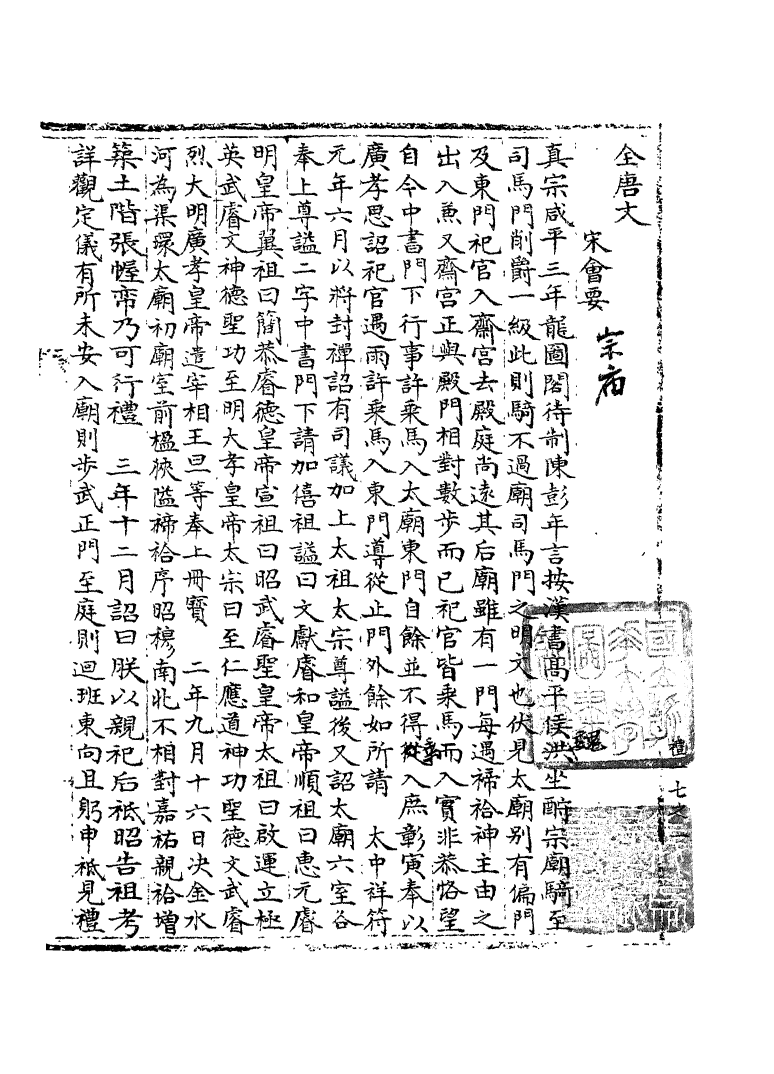 全唐文
宋會要
宗庙
真宗咸平三年龍圖閣待制陳彭年言按漢書髙平侯洪坐酎宗廟騎至
司馬門削爵一級此則騎不過廟司馬門之明文也伏見太廟别有偏門
及東門祀官入齋宫去殿庭尚逺其后廟雖有一門每遇禘祫神主由之
出入兼又齋宫正與殿門相對數步而已祀官皆乘馬而入實非恭恪望
自今中書門下行事許乘馬入太廟東門自餘並不得乘入庶彰寅奉以
廣孝思詔祀官遇雨許乘馬入東門導從止門外餘如所請　太中祥符
元年六月以將封禪詔有司議加上太祖太宗尊謚後又詔太廟六室各
奉上尊謚二字中書門下請加僖祖謚曰文獻睿和皇帝順祖曰惠元睿
明皇帝翼祖曰簡恭睿德皇帝宣祖曰昭武睿聖皇帝太祖曰啟運立極
英武睿文神德聖功至明大孝皇帝太宗曰至仁應道神功聖德文武睿
烈大明廣孝皇帝遣宰相王旦等奉上冊寶　二年九月十六日决金水
河為渠環太廟初廟室前楹狹隘禘祫序昭穆南北不相對嘉祐親祫增
築土階張幄帟乃可行禮　三年十二月詔曰朕以親祀后祗昭告祖考
詳觀定儀有所未安入廟則步武正門至庭則迴班東向且躬申祗見禮
魏
禮
七之一